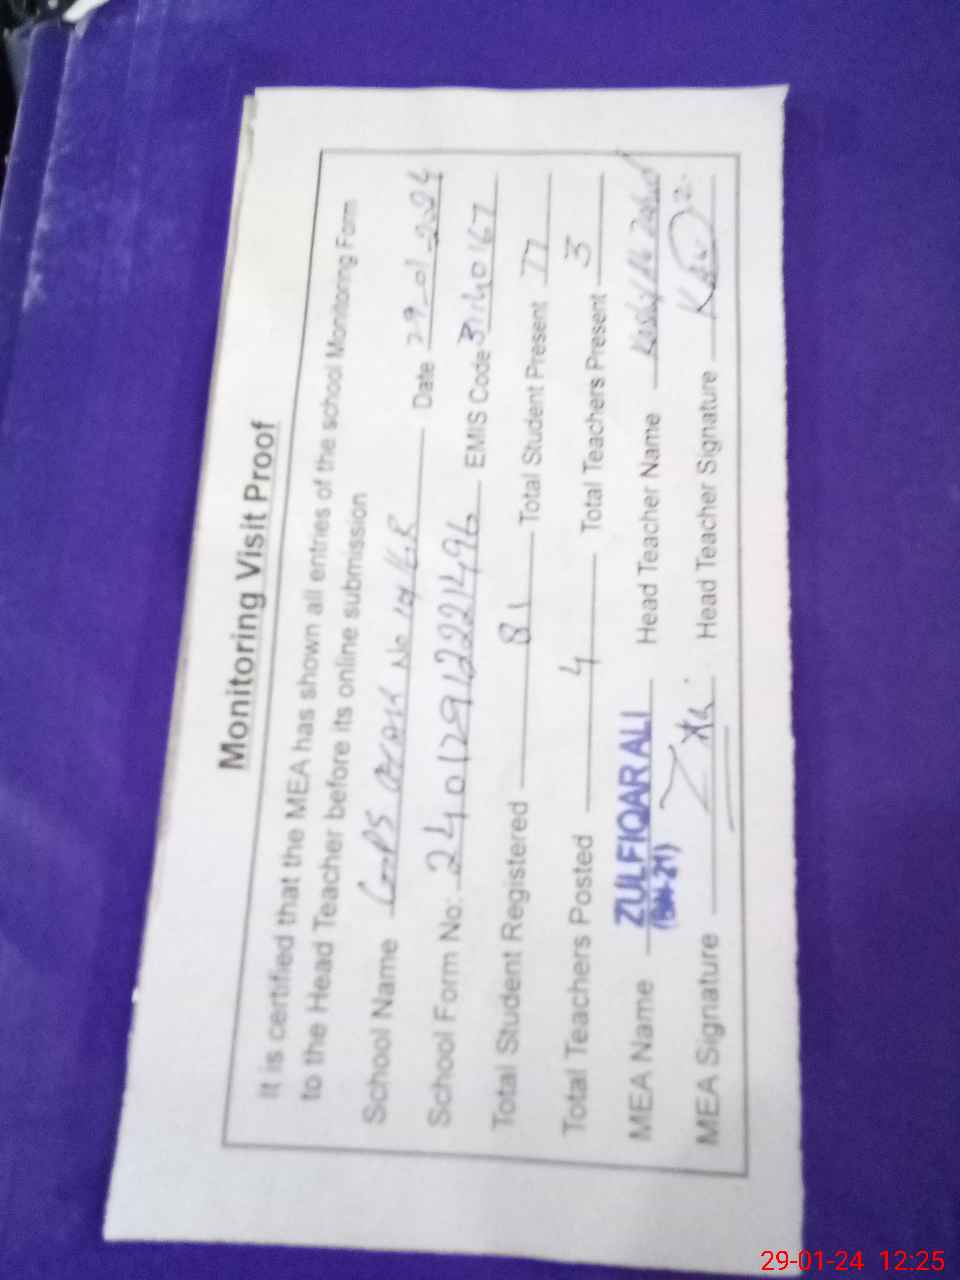 Monitoring Visit Proof
It is certified that the MEA has shown all entries of the school Monitoring Form
to the Head Teacher before its online submission
School Name GGPS No Date 29-01-2024
School Form No: 24012912221496 EMIS Code 31140167
Total Student Registered 81 Total Student Present 77
Total Teachers Posted 4 Total Teachers Present 3
MEA Name ZULFIQAR ALI Head Teacher Name
MEA Signature Head Teacher Signature
29-01-24 12:25